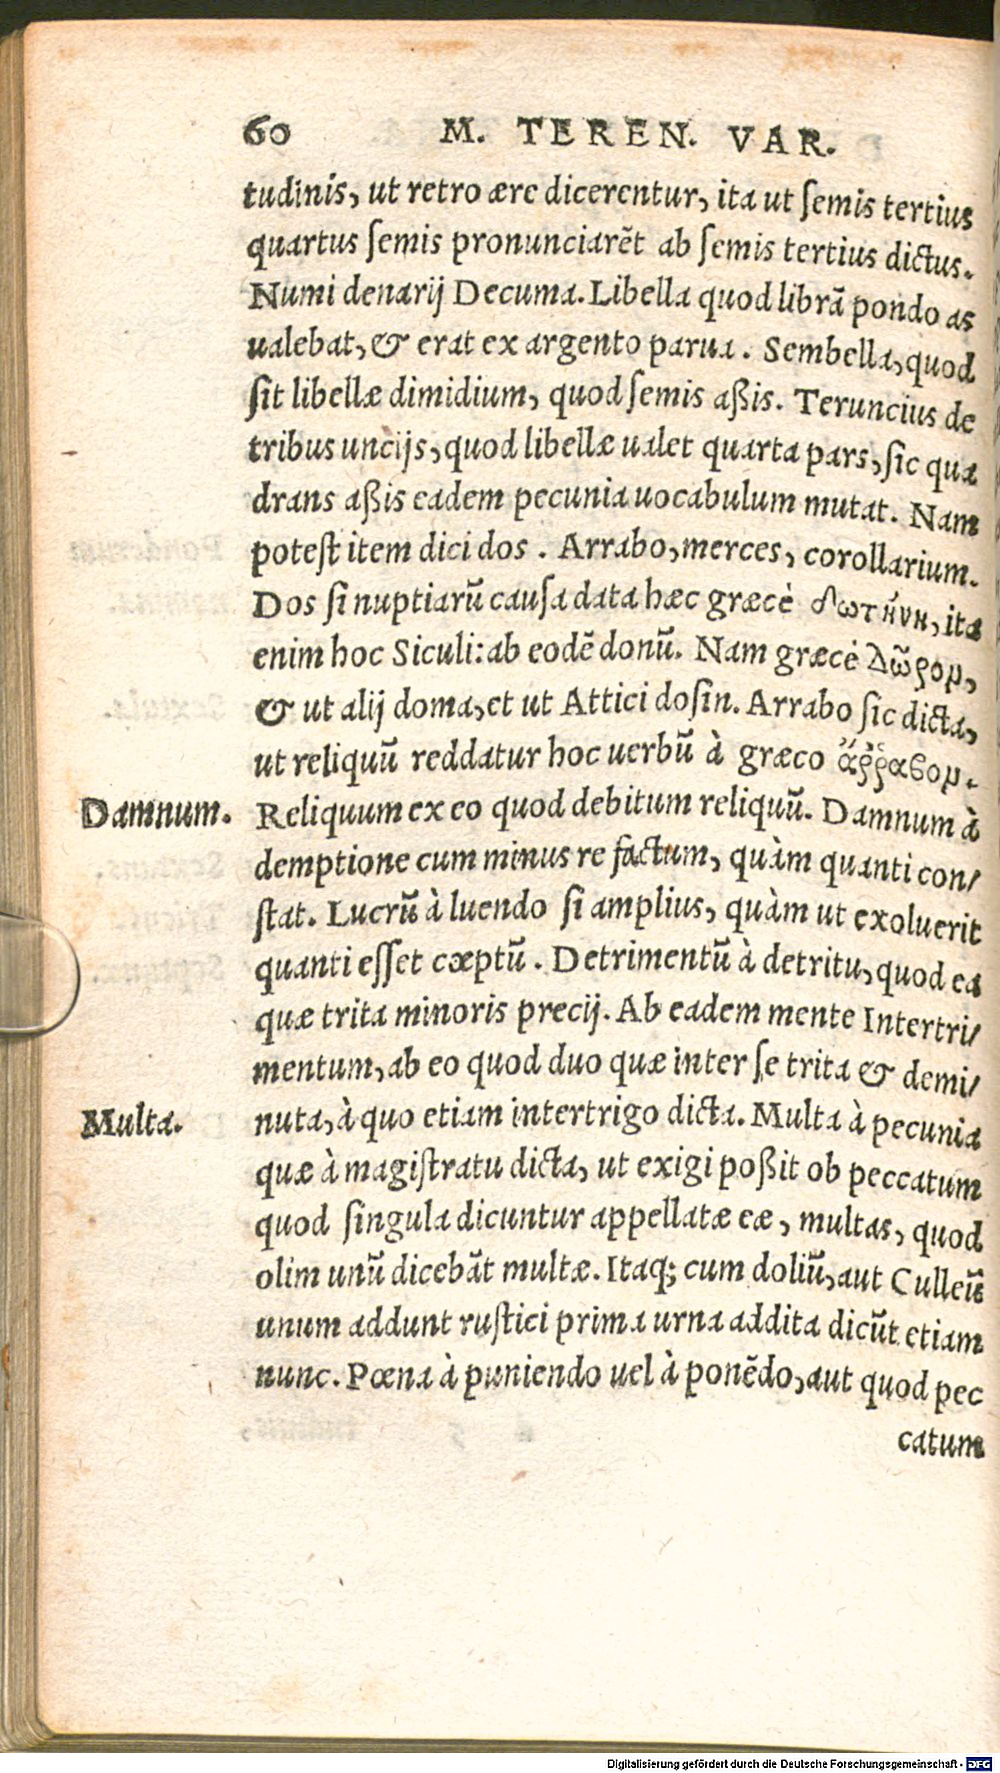 60 M. TEREN. VAR.
tudinis, ut retro ære dicerentur, ita ut ſemis tertius
quartus ſemis pronunciarẽt ab ſemis tertius dictus.
Numi denarij Decuma. Libella quod librã pondo as
ualebat, & erat ex argento parua. Sembella, quod
ſit libellæ dimidium, quod ſemis aßis. Teruncius de
tribus uncijs, quod libellæ ualet quarta pars, ſic qua
drans aßis eadem pecunia uocabulum mutat. Nam
poteſt item dici dos. Arrabo, merces, corollarium.
Dos ſi nuptiarũ cauſa data hæc græcè δωτήνη, ita
enim hoc Siculi: ab eodẽ donũ. Nam græcè Δῶρομ,
& ut alij doma, et ut Attici doſin. Arrabo ſic dicta,
ut reliquũ reddatur hoc uerbũ à græco ἄῤῥαβομ.
Damnum. Reliquum ex eo quod debitum reliquũ. Damnum à
demptione cum minus re factum, quàm quanti con/
ſtat. Lucrũ à luendo ſi amplius, quàm ut exoluerit
quanti eſſet cœptũ. Detrimentũ à detritu, quod ea
quæ trita minoris precij. Ab eadem mente Intertri/
mentum, ab eo quod duo quæ inter ſe trita & demi/
nuta, à quo etiam intertrigo dicta. Multa à pecunia
Multa.
quæ à magiſtratu dicta, ut exigi poßit ob peccatum
quod ſingula dicuntur appellatæ eæ, multas, quod
olim unũ dicebãt multæ. Itaq; cum doliũ, aut Culleũ
unum addunt ruſtici prima urna addita dicũt etiam
nunc. Pœna à puniendo uel à ponẽdo, aut quod pec
catum
Digitalisierung gefördert durch die Deutsche Forschungsgemeinschaft - DFG